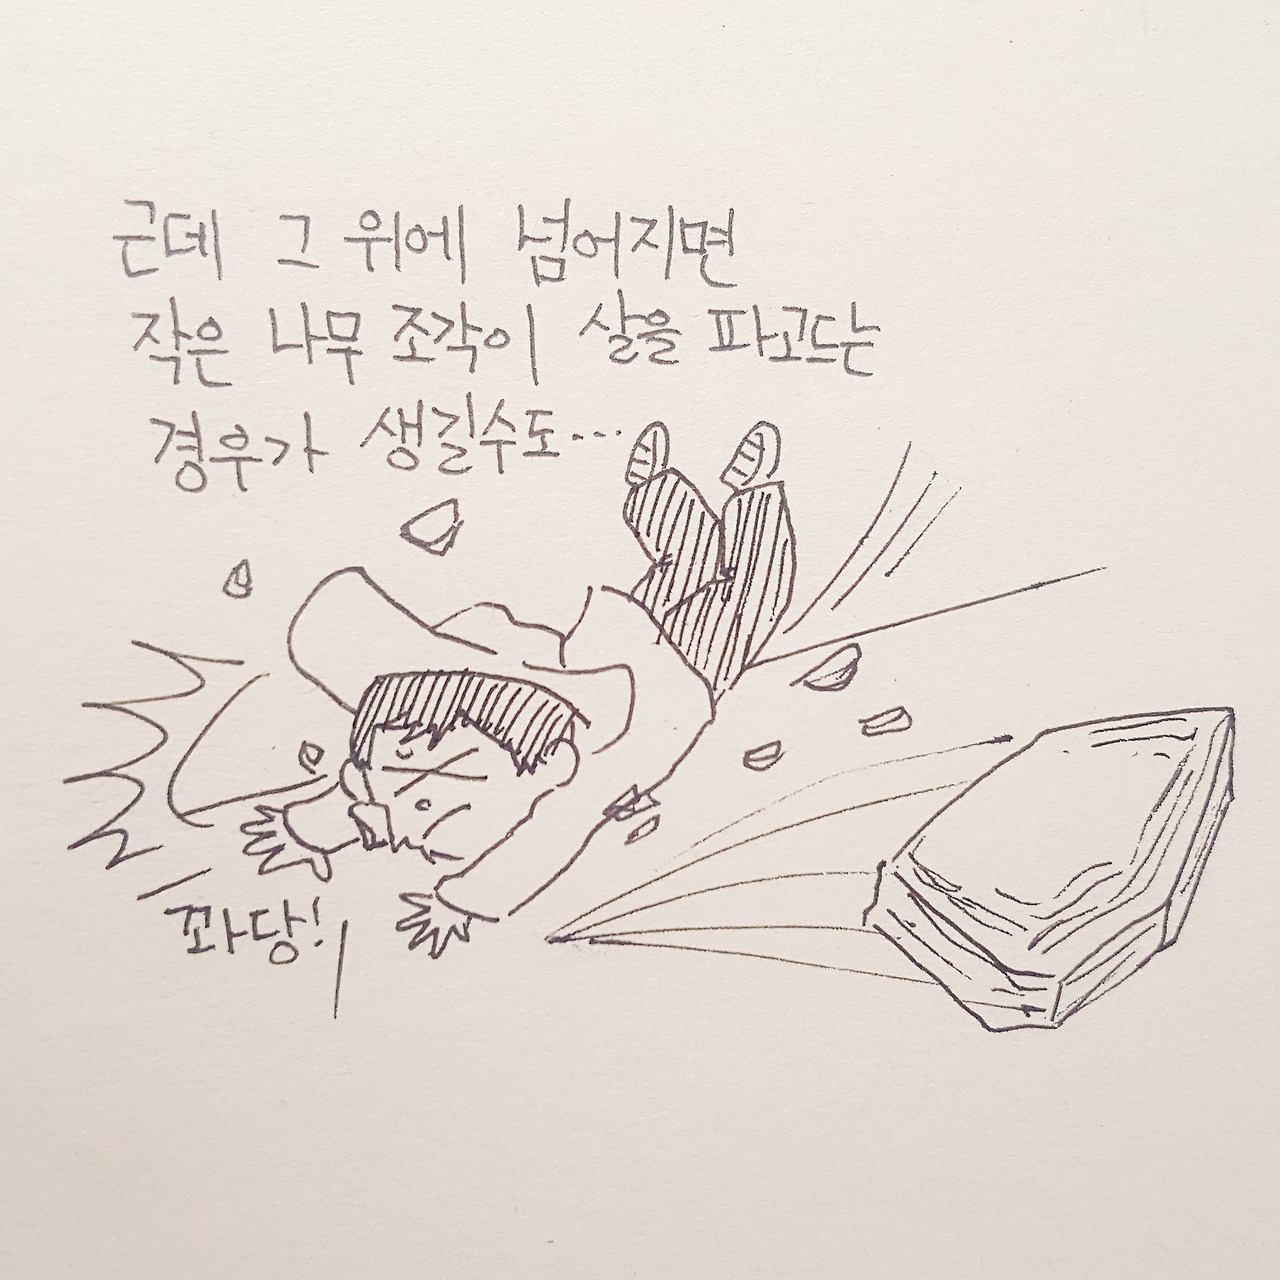 근데 그 위에 넘어지면
작은 나무 조각이 살을 파고드는
경우가 생길수도...
꽈당!